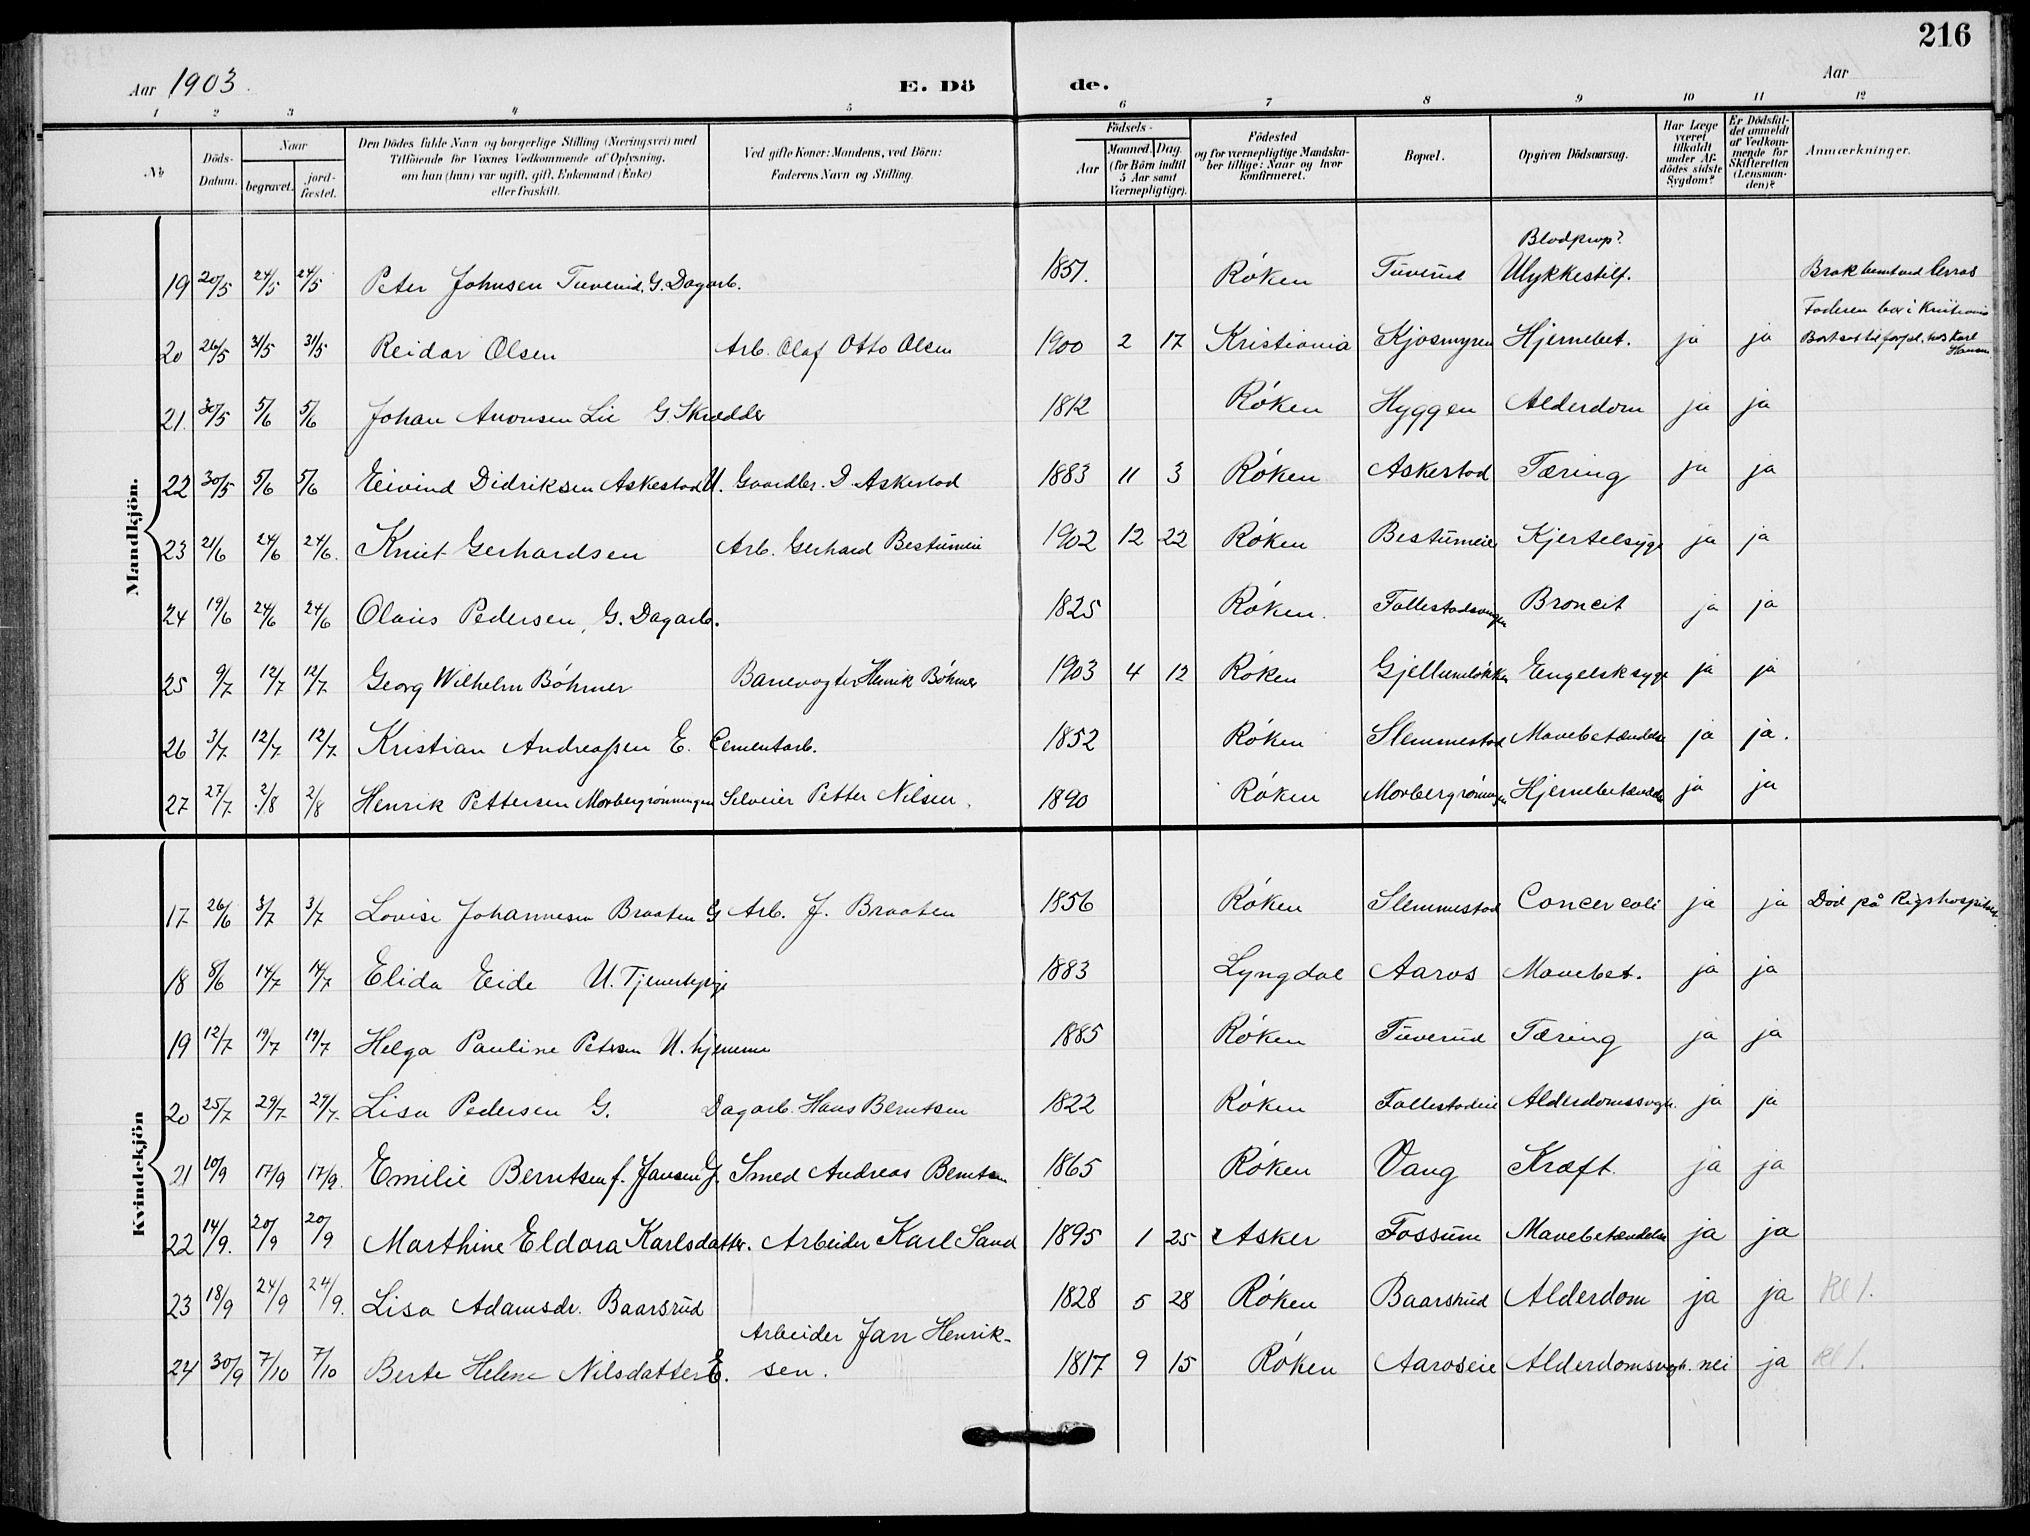 216
Aar 1903. E. Dö de. Aar
1 2 3 4 5 6 7 8 9 10 11 12
No Döds-Datum. Naar begravet. jord-fæstet. Den Dödes fulde Navn og borgerlige Stilling (Næringsvei) med Tilföiende for Voxnes Vedkommende af Oplysning, om han (hun) var ugift, gift, Enkemand (Enke) eller fraskilt. Ved gifte Koner: Mandens, ved Börn: Faderens Navn og Stilling. Födsels- Aar Maaned. Dag. (for Börn indtil 5 Aar samt Værnepligtige). Födested og for værnepligtige Mandskaber tillige: Naar og hvor konfirmeret. Bopæl. Opgiven Dödsaarsag. Har Læge været tilkaldt under Afdödes sidste Sygdom? Er Dödsfaldet anmeldt af Vedkommende for Skifteretten (Lensmanden)? Anmærkninger.
Mandkjön.
Blodprop?
19 20/5 24/5 24/5 Peter Johnsen Tuverud, G. Dagarb. 1857. Røken Tuverud Ulykkestilf. Brak
Faderen bor i Kristiania
20 26/5 31/5 31/5 Reidar Olsen Arb. Olaf Otto Olsen 1900 2 17 Kristiania Kjosmyren Hjernebet. ja ja Bortsat til forpl. hos Karl Hansen
21. 30/5 5/6 5/6 Johan Aronsen Lie G. Skrædder 1812 Røken Hyggen Alderdom ja ja
22 30/5 5/6 5/6 Eivind Didriksen Askestad U. Gaardbr. D. Askestad 1883 11 3 Røken Askestad Tæring ja ja
23 21/6 24/6 24/6. Knut Gerhardsen Arb. Gerhard Bestumeie 1902 12 22 Røken Bestumeie Kjertelsyge ja ja
24 19/6 24/6 24/6 Olaus Pedersen, G. Dagarb. 1825 Røken. Follestadvangen Broncit ja ja
25 9/7 12/7 12/7 Georg Wilhelm Bøhmer Banevogter Henrik Bøhmer 1903 4 12 Røken Gjellumløkken Eengelsksyge ja ja
26 3/7 12/7 12/7 Kristian Andreassen E. Cementarb. 1852 Røken Slemmestad Mavebetændelse ja ja.
27 27/7 2/8 2/8 Henrik Pettersen Morbergrønningen Selveier Petter Nilsen. 1890 Røken Morbergrønningen Hjernebetændelse ja ja
Kvindekjön
17 26/6 3/7 3/7 Lovise Johannesen Braaten G Arb. J. Braaten 1856 Røken Slemmestad Cancer coli ja ja Død på Rigshospitalet
18 8/6 14/7 14/7 Elida Eide U. Tjenestepige 1883 Lyngdal Aaros Mavebet. ja ja
19 12/7 19/7 19/7 Helga Pauline Petersen U. hjemme 1885 Røken Tuverud Tæring ja ja
20 25/7 29/7 29/7. Lisa Pedersen G. Dagarb. Hans Berntsen 1822 Røken Follestadeie Alderdomssvagh. ja ja
21 10/9 17/9 17/9. Emilie Berntsen f. Jansen G. Smed Andreas Berntsen 1865 Røken Vang Kræft. ja ja
22 14/9. 20/9 20/9 Marthine Eldora Karlsdatter. Arbeider Karl Sand 1895 1 25 Asker Fossum Mavebetændelse ja ja
23 18/9 24/9 24/9. Lisa Adamsdr. Baarsrud 1828 5 28 Røken Baarsrud Alderdom ja ja Kl 1.
24 30/9 7/10 7/10 Berte Helene Nilsdatter E. Arbeider Jan Henriksen. 1817 9 15 Røken Aaroseie Alderdomsvagh. nei ja Kl 1.